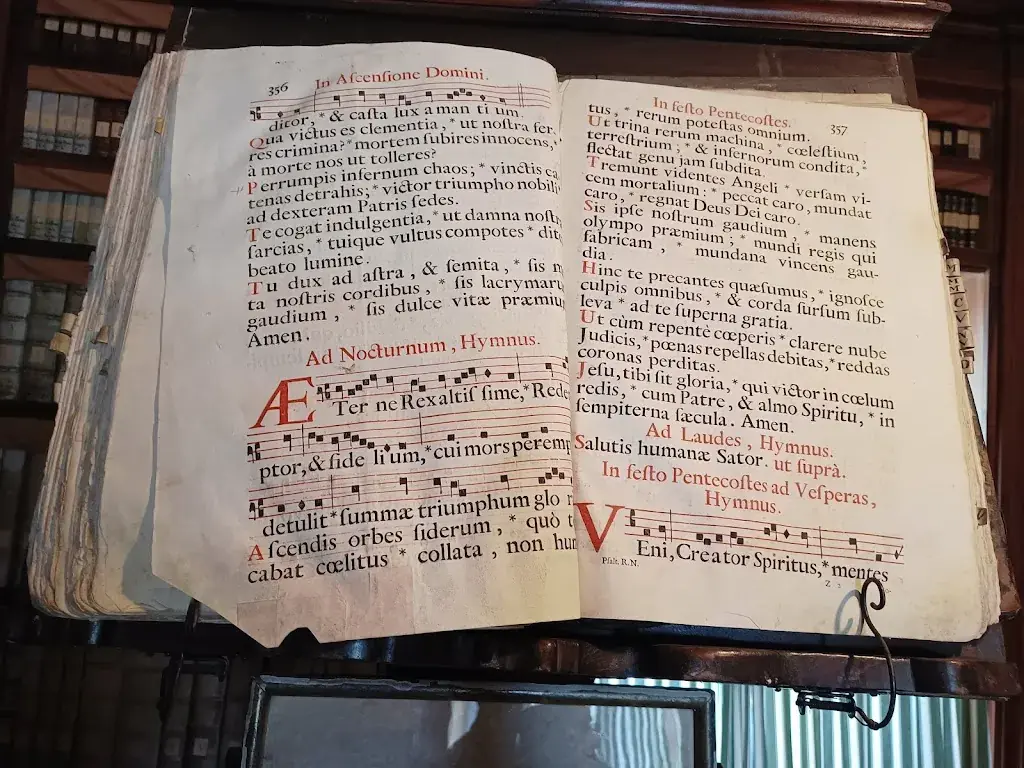 356 In Ascensione Domini.
ditor, * & casta lux a man ti um.
Qua victus es clementia, * ut nostra fer-
res crimina? * mortem subires innocens, *
à morte nos ut tolleres?
Perrumpis infernum chaos; * vinctis ca-
tenas detrahis; * victor triumpho nobili
ad dexteram Patris sedes.
Te cogat indulgentia, * ut damna nostr
sarcias, * tuique vultus compotes * dit
beato lumine.
Tu dux ad astra, & semita, * sis m
ta nostris cordibus, * sis lacrymaru
gaudium, * sis dulce vitæ præmiu
Amen.
Ad Nocturnum, Hymnus.
ÆTer ne Rex altis sime, * Rede
ptor, & fide li um, * cui mors peremp
detulit * summæ triumphum glo r
Ascendis orbes siderum, * quò t
cabat cœlitus * collata, non hum
In festo Pentecostes. 357
tus, * rerum potestas omnium.
Ut trina rerum machina, * cœlestium,
terrestrium, * & infernorum condita, *
flectat genu jam subdita.
Tremunt videntes Angeli * versam vi-
cem mortalium: * peccat caro, mundat
caro, * regnat Deus Dei caro.
Sis ipse nostrum gaudium, * manens
olympo præmium, * mundi regis qui
fabricam, * mundana vincens gau-
dia.
Hinc te precantes quæsumus, * ignosce
culpis omnibus, * & corda sursum sub-
leva * ad te superna gratia.
Ut cùm repentè cœperis * clarere nube
Judicis, * pœnas repellas debitas, * reddas
coronas perditas.
Jesu, tibi sit gloria, * qui victor in cœlum
redis, * cum Patre, & almo Spiritu, * in
sempiterna sæcula. Amen.
Ad Laudes, Hymnus.
Salutis humanæ Sator. ut suprà.
In festo Pentecostes ad Vesperas,
Hymnus.
VEni, Creator Spiritus, * mentes
Psalt. R.N.